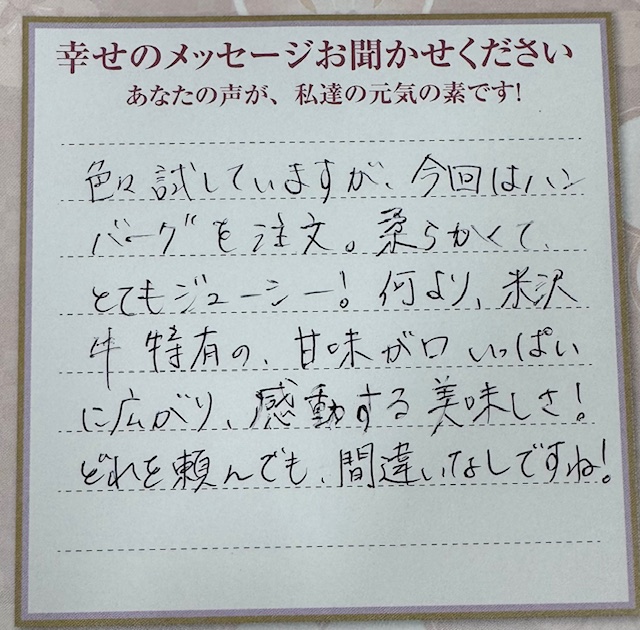 幸せのメッセージお聞かせください
あなたの声が、私達の元気の素です!
色々試していますが、今回はハン
バーグを注文。柔らかくて、
とてもジューシー!何より、米沢
牛特有の、甘味が口いっぱい
に広がり、感動する美味しさ!
どれを頼んでも、間違いなしですね!